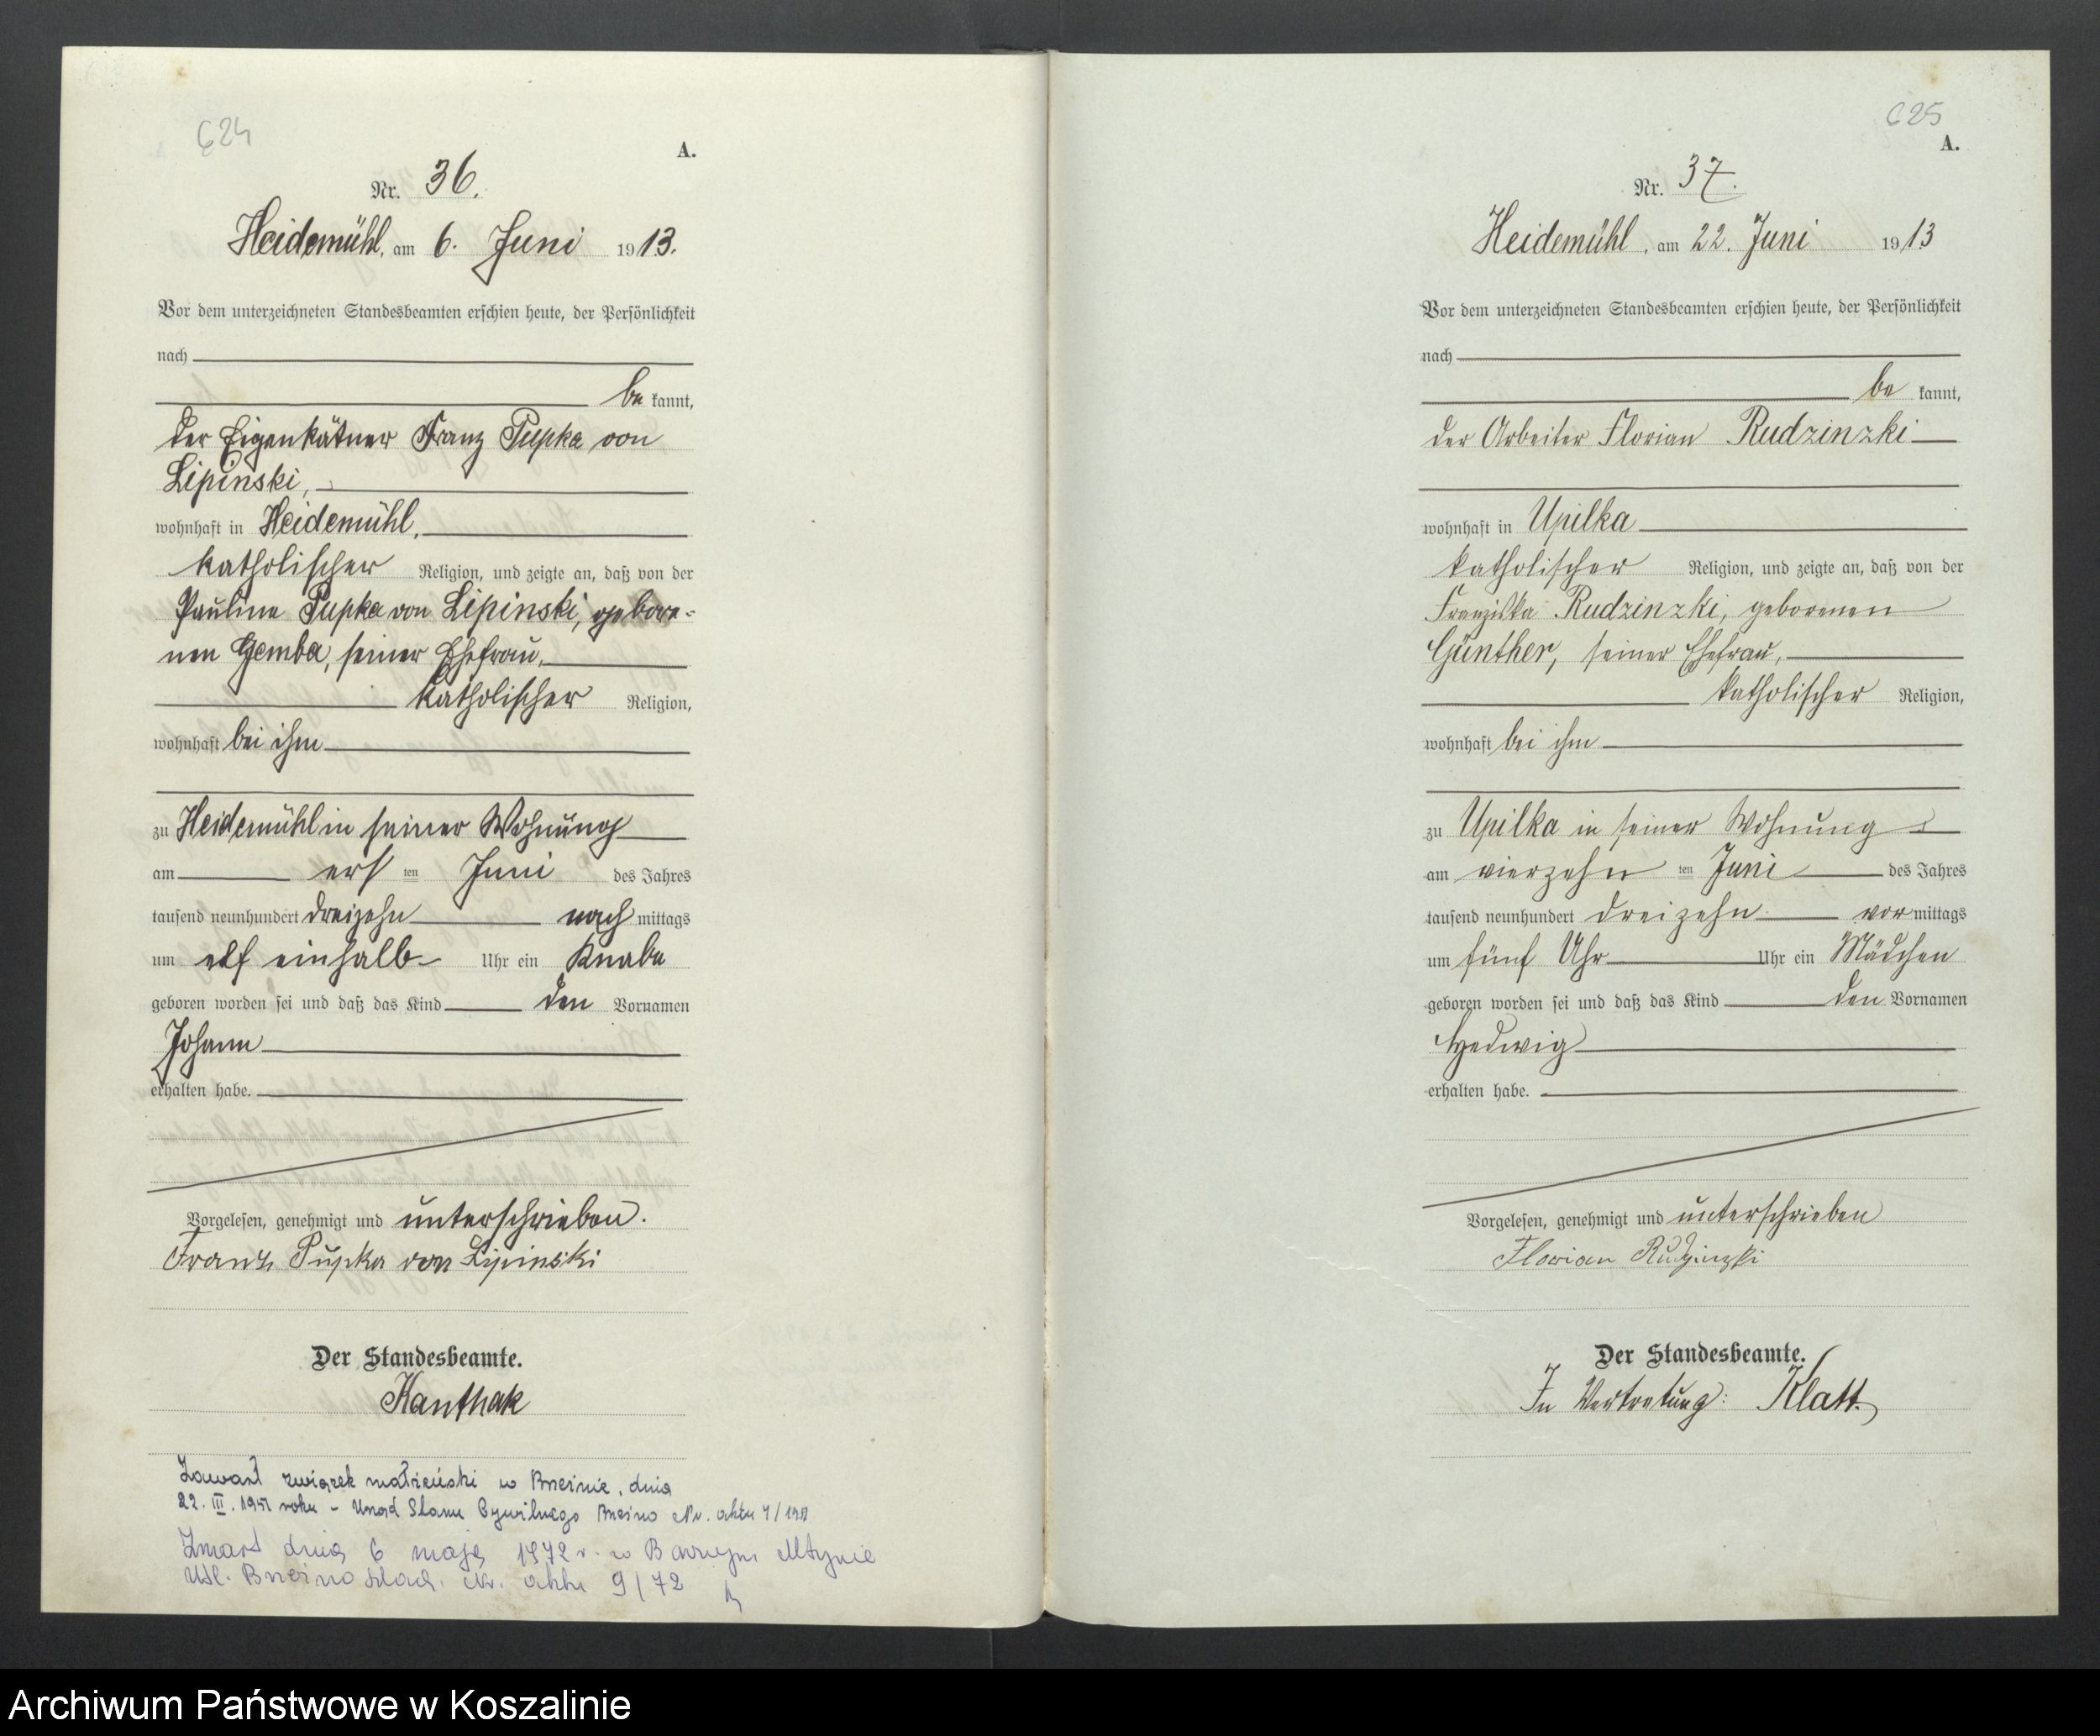 624
A.
Nr. 36.
Heidemühl, am 6. Juni 1913.
Vor dem unterzeichneten Standesbeamten erschien heute, der Persönlichkeit
nach
be kannt,
der Eigenkätner Franz Pupka von
Lipinski,
wohnhaft in Heidemühl,
katholischer Religion, und zeigte an, daß von der
Pauline Pupka von Lipinski, gebore-
nen Gemba, seiner Ehefrau,
katholischer Religion,
wohnhaft bei ihm
zu Heidemühl in seiner Wohnung
am ersten Juni des Jahres
tausend neunhundert dreizehn nach mittags
um elf einhalb Uhr ein Knabe
geboren worden sei und daß das Kind den Vornamen
Johann
erhalten habe.
Vorgelesen, genehmigt und unterschrieben.
Franz Pupka von Lipinski
Der Standesbeamte.
Kanthak
Zawarł związek małżeński w Brzeźnie, dnia
22. III. 1951 roku - Urząd Stanu Cywilnego Brzeźno Nr. aktu
Zmarł dnia 6 maja 1972 r. w Borowym Młynie
USC. Brzeźno Szlach. Nr. aktu 9/72
625
A.
Nr. 37.
Heidemühl, am 22. Juni 1913
Vor dem unterzeichneten Standesbeamten erschien heute, der Persönlichkeit
nach
be kannt,
der Arbeiter Florian Rudzinzki
wohnhaft in Upilka
katholischer Religion, und zeigte an, daß von der
Franziska Rudzinzki, geborenen
Günther, seiner Ehefrau,
katholischer Religion,
wohnhaft bei ihm
zu Upilka in seiner Wohnung
am vierzehnten Juni des Jahres
tausend neunhundert dreizehn vor mittags
um fünf Uhr Uhr ein Mädchen
geboren worden sei und daß das Kind den Vornamen
Hedwig
erhalten habe.
Vorgelesen, genehmigt und unterschrieben
Florian Rudzinzki
Der Standesbeamte.
In Vertretung: Klatt.
Archiwum Państwowe w Koszalinie